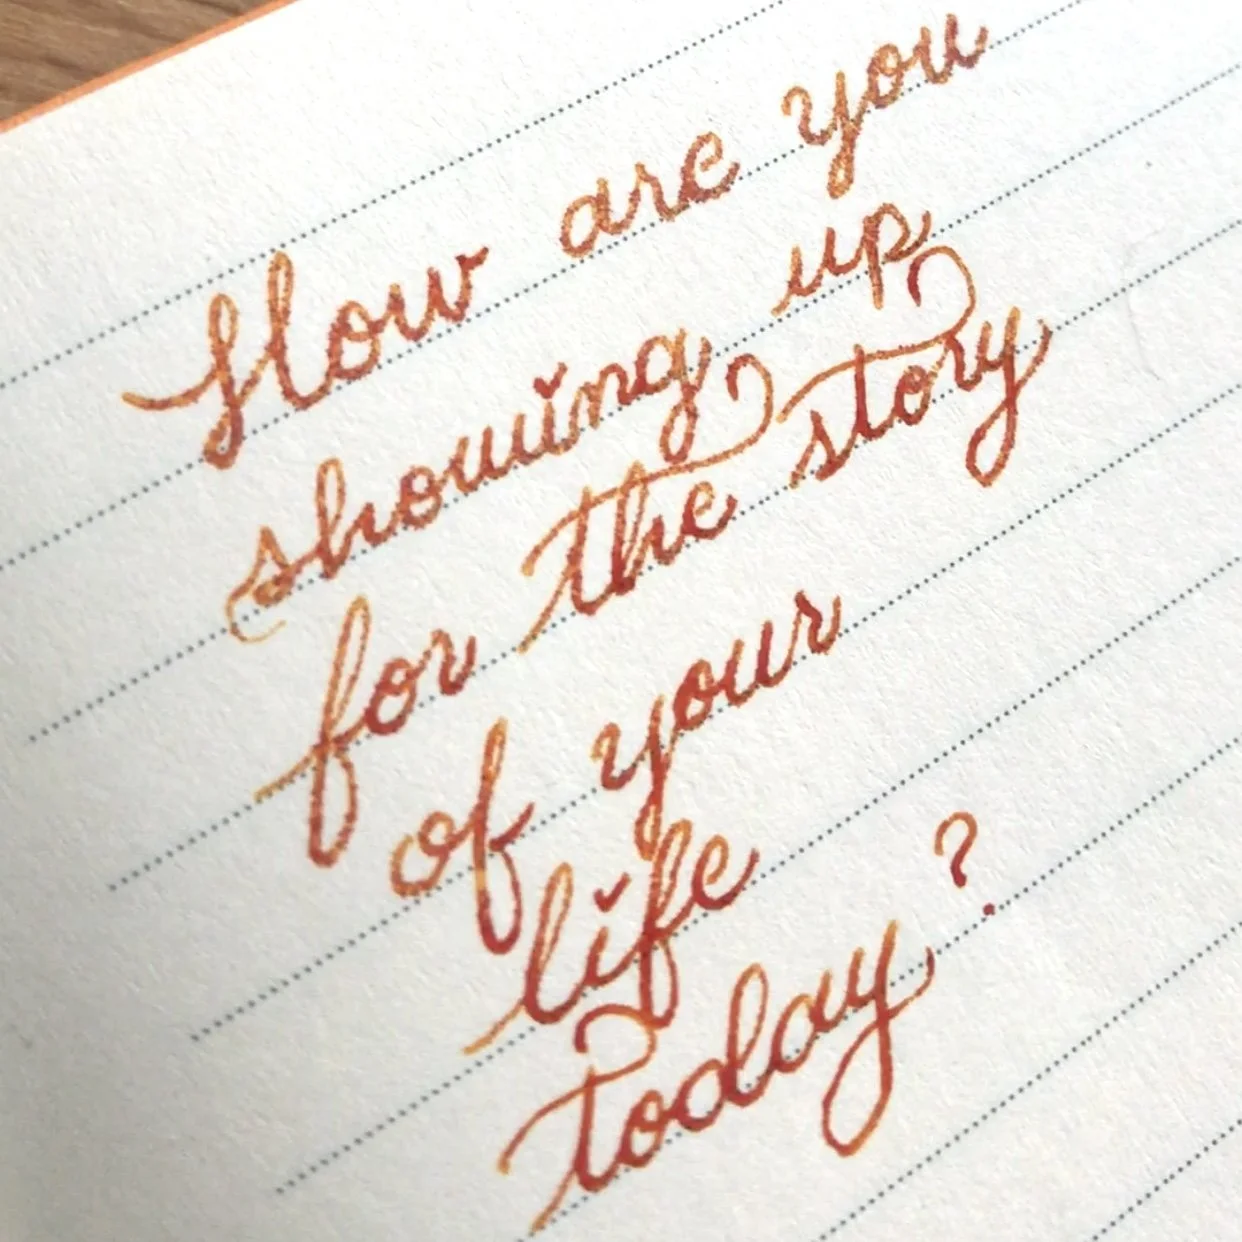 How are you
showing up
for the story
of your
life
today?